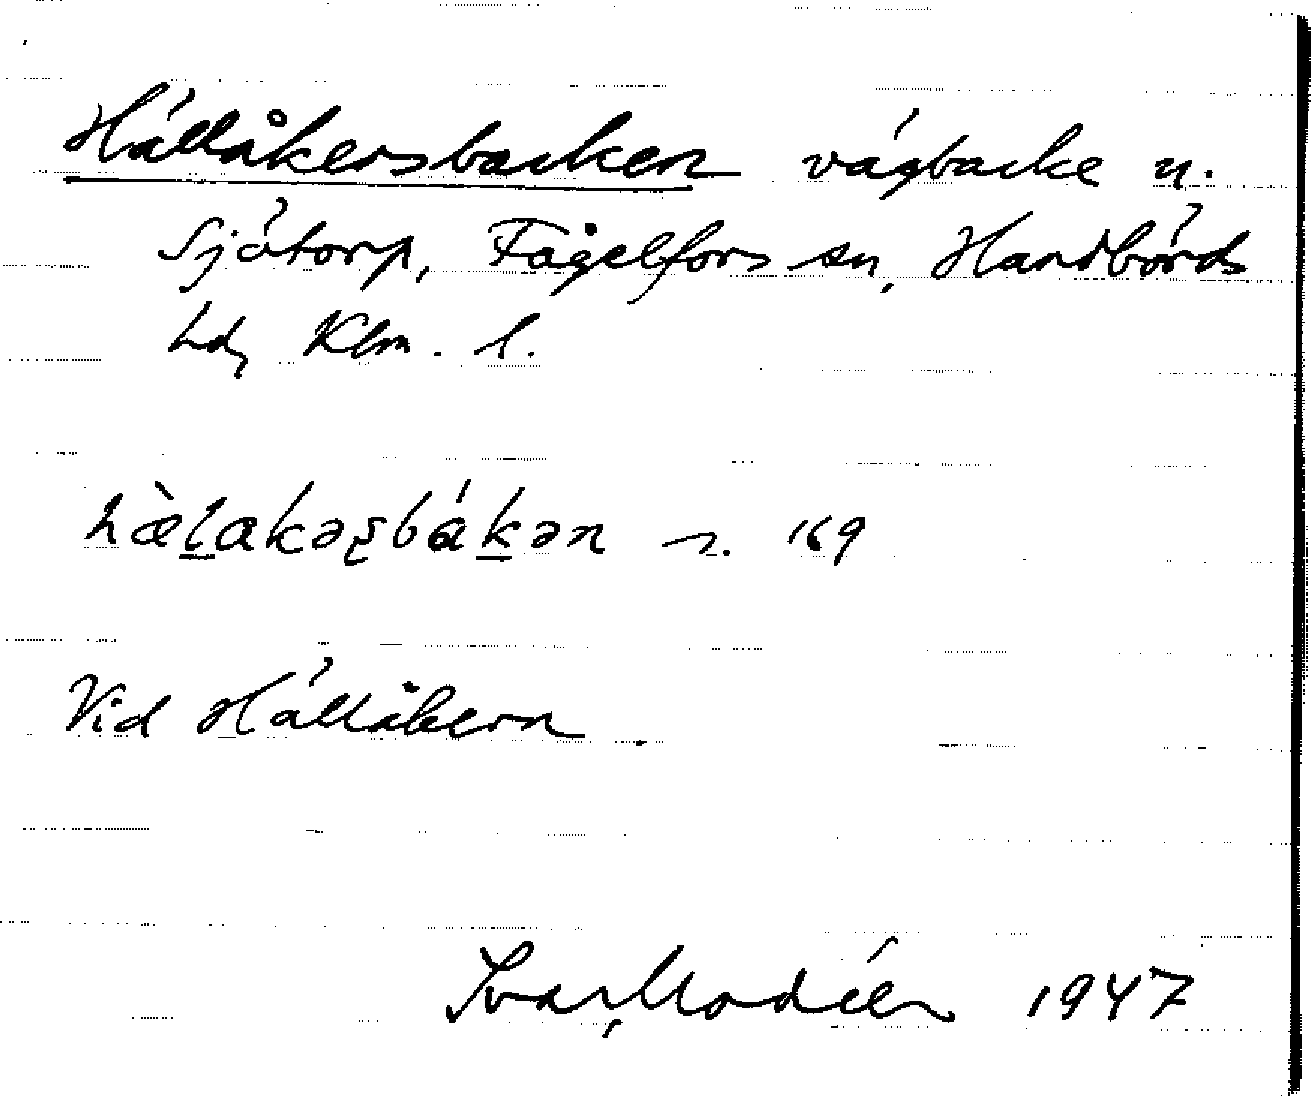 Hällåkersbacken vägbacke n.
Sjötorp, Fågelfors sn, Handbörds
hd, Klm. l.
hæ̀l̠akəʂbák̠ən n. 169
Vid Hällåkern
Ivar Modéer 1947